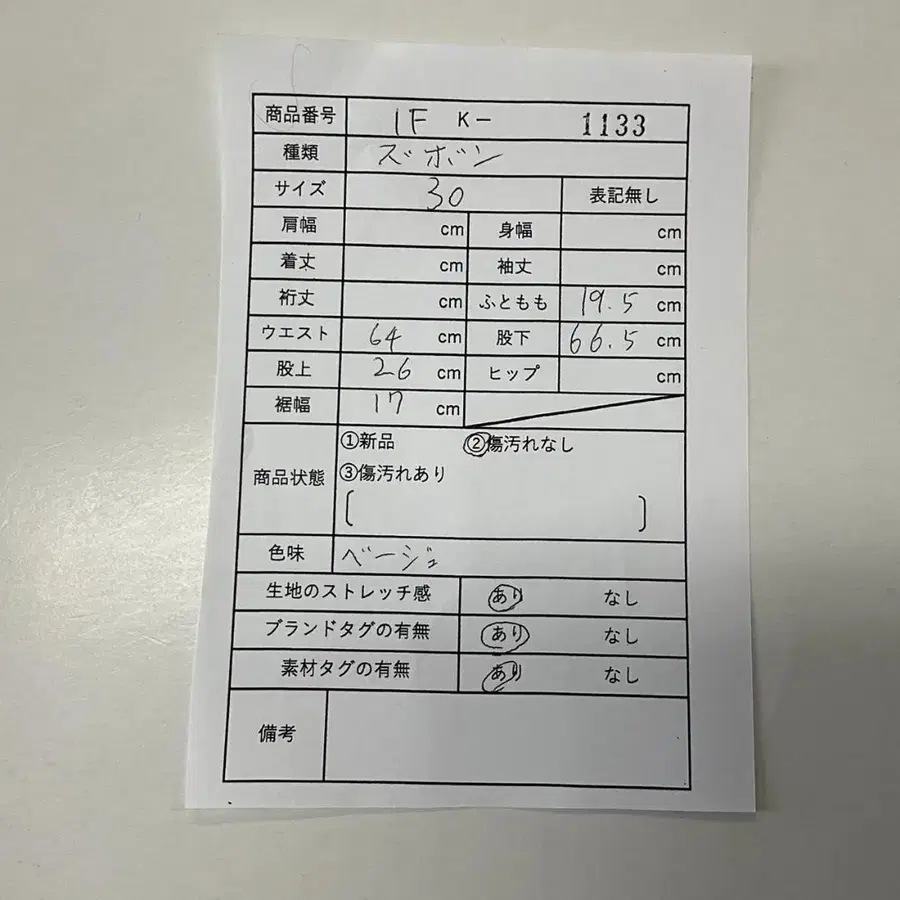 商品番号 1F K- 1133
種類 ズボン
サイズ 30 表記無し
肩幅 cm 身幅 cm
着丈 cm 袖丈 cm
裄丈 cm ふともも 19.5 cm
ウエスト 64 cm 股下 66.5 cm
股上 26 cm ヒップ cm
裾幅 17 cm
商品状態 ①新品 ②傷汚れなし
③傷汚れあり
[ ]
色味 ベージュ
生地のストレッチ感 あり なし
ブランドタグの有無 あり なし
素材タグの有無 あり なし
備考